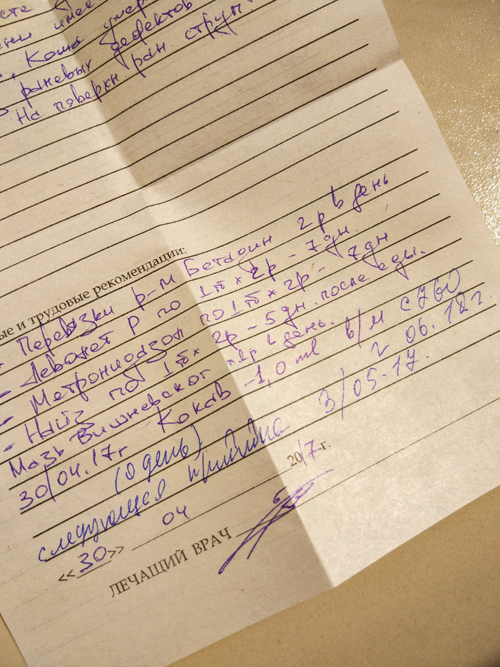 раневых дефектов
На поверхн ран струп
ые и трудовые рекомендации:
- Перевязки р-м Бетадин 2р в день
- Леволет Р по 1т х 2р - 7 дн.
- Метронидазол по 1т х 2р - 7 дн
- Найз по 1т х 2р - 5 дн. после еды.
Мазь Вишневского 2р в день.
30/04.17г Кокав - 1,0 ml в/м с 760
(0 день) 06.18г.
следующая прививка 3/05.17.
«30» 04 2017г.
ЛЕЧАЩИЙ ВРАЧ